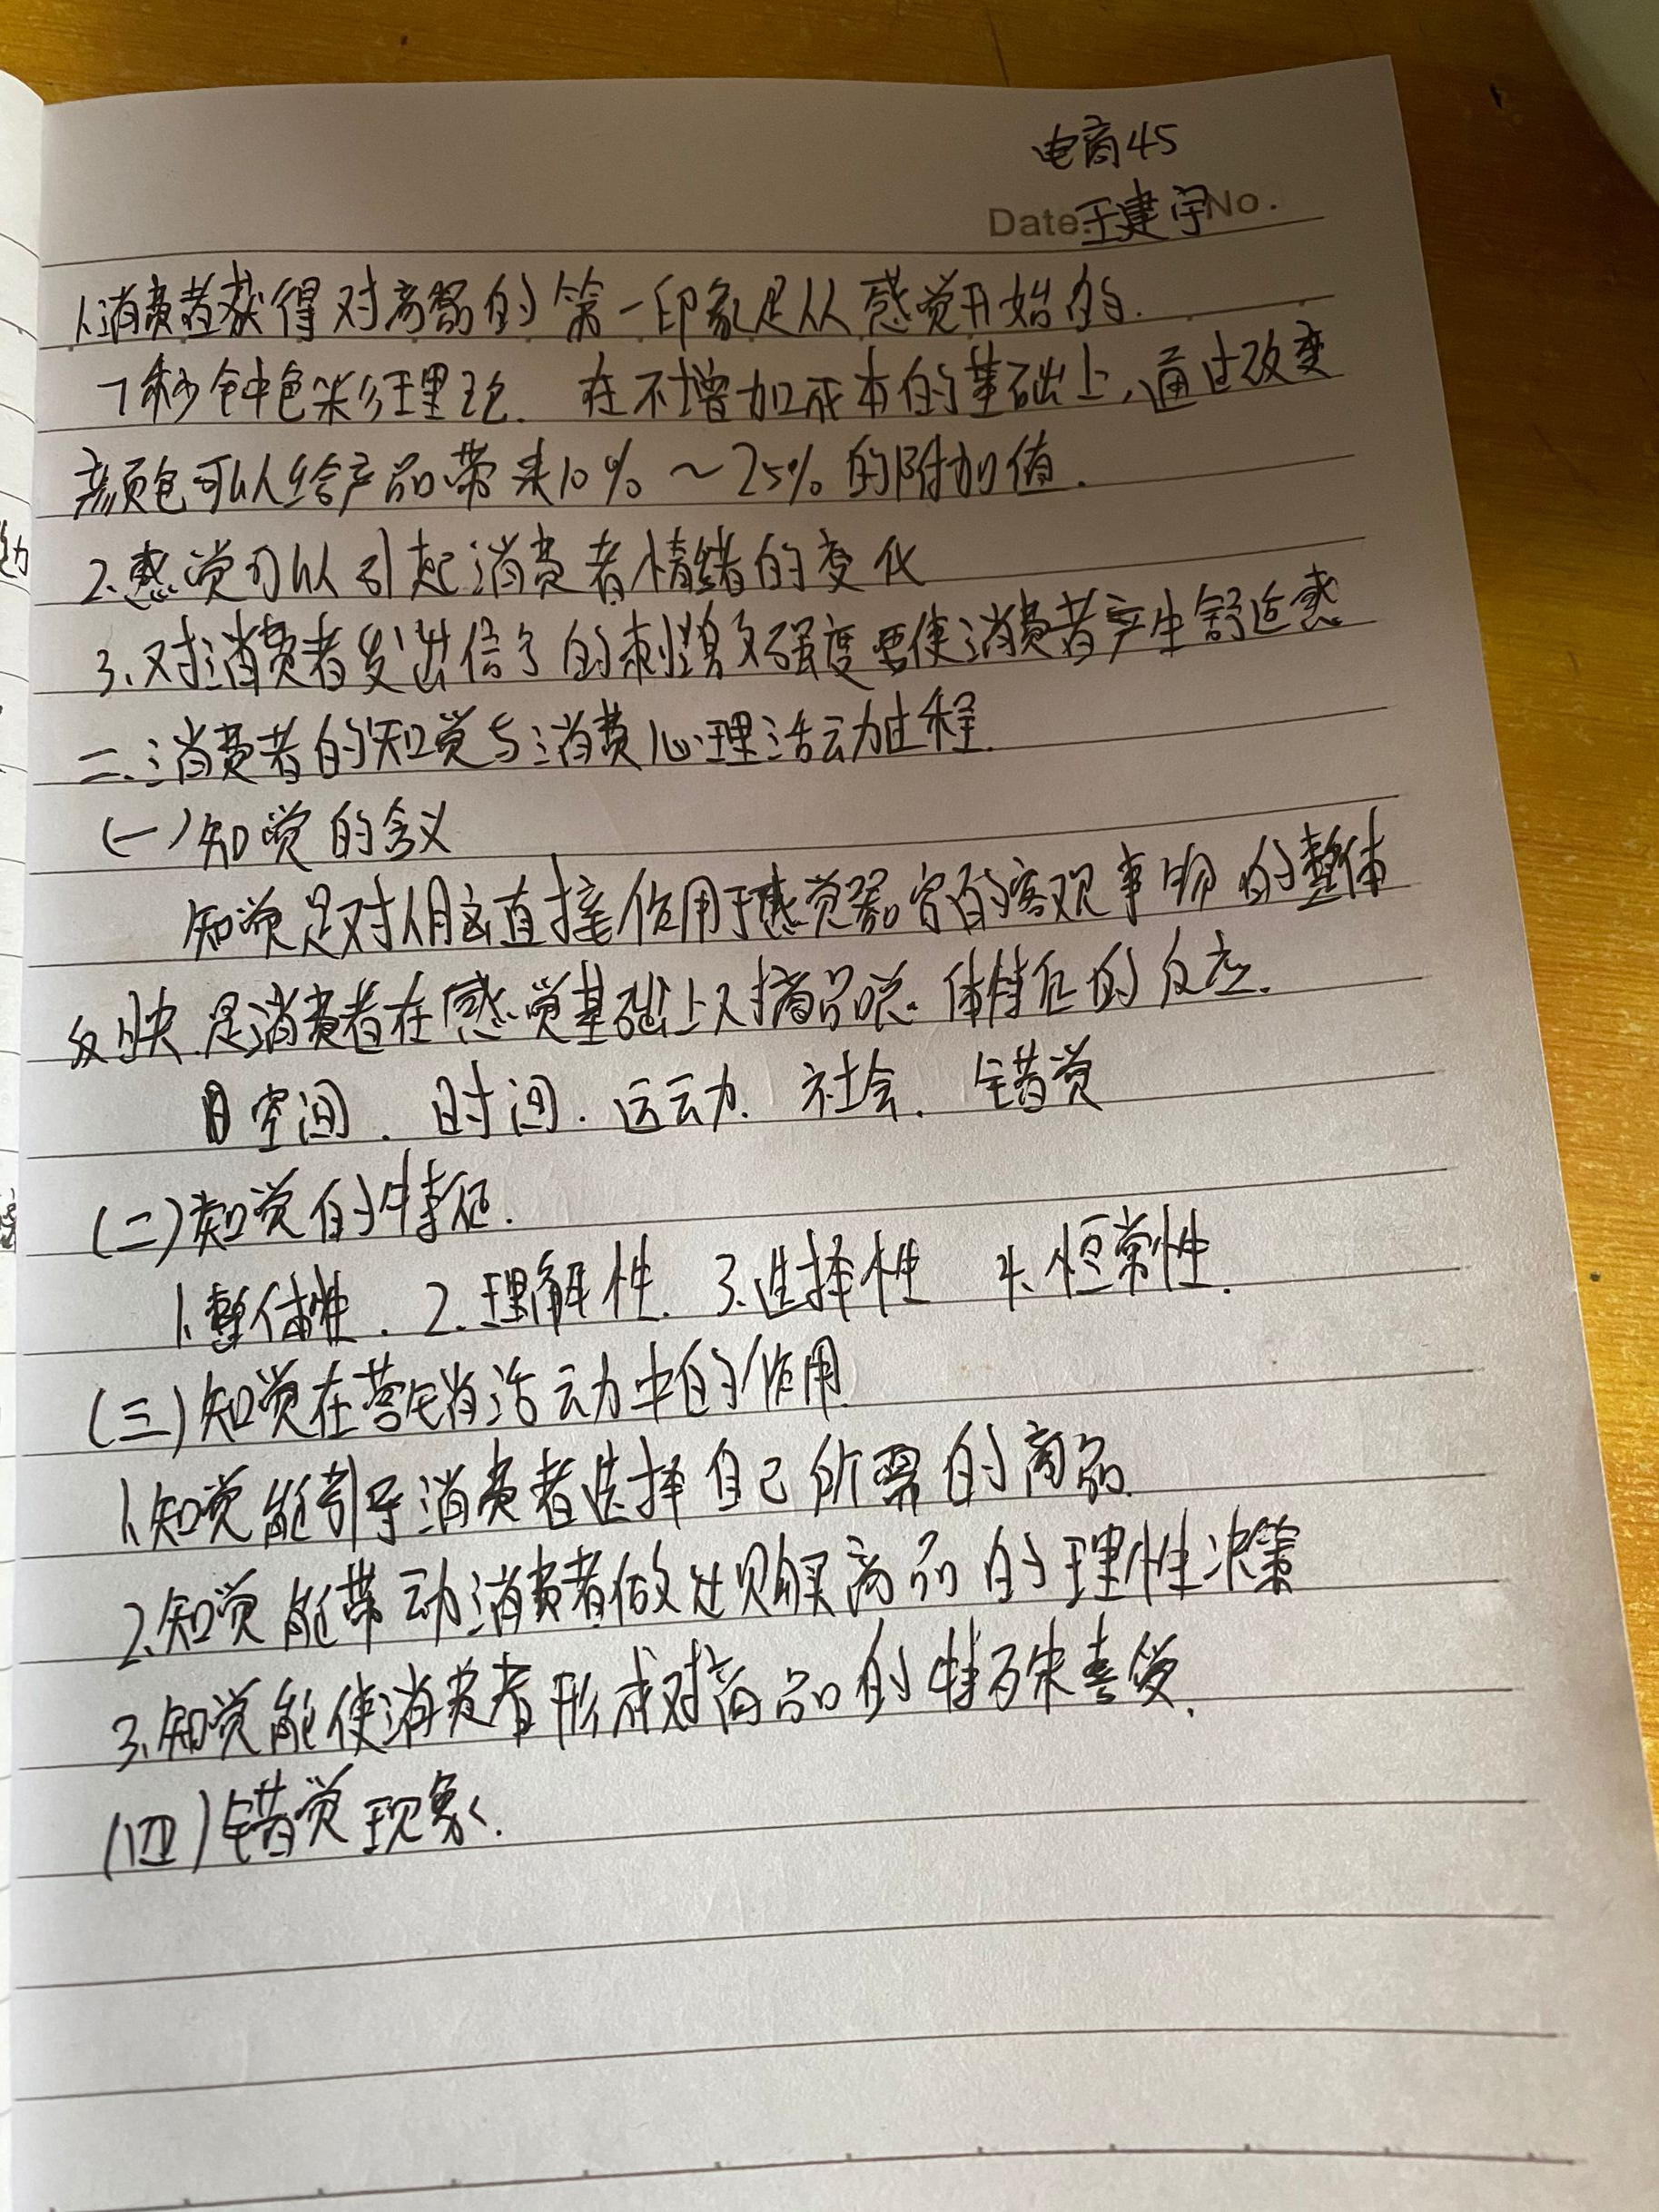 电商45
Date 王建宇 No.
1.消费者获得对商品的第一印象是从感觉开始的.
7秒钟色彩理论. 在不增加成本的基础上,通过改变
颜色可以给产品带来10%~25%的附加值.
2.感觉可以引起消费者情绪的变化
3.对消费者发出信号的刺激强度要使消费者产生舒适感
二.消费者的知觉与消费心理活动过程.
(一)知觉的含义
知觉是对人脑直接作用于感觉器官的客观事物的整体
反映.是消费者在感觉基础上对商品总体特征的反应.
空间.时间.运动.社会.错觉
(二)知觉的特征.
1.整体性.2.理解性.3.选择性 4.恒常性.
(三)知觉在营销活动中的作用.
1.知觉能引导消费者选择自己所需的商品.
2.知觉能带动消费者做出购买商品的理性决策
3.知觉能使消费者形成对商品的特殊喜爱.
(四)错觉现象.